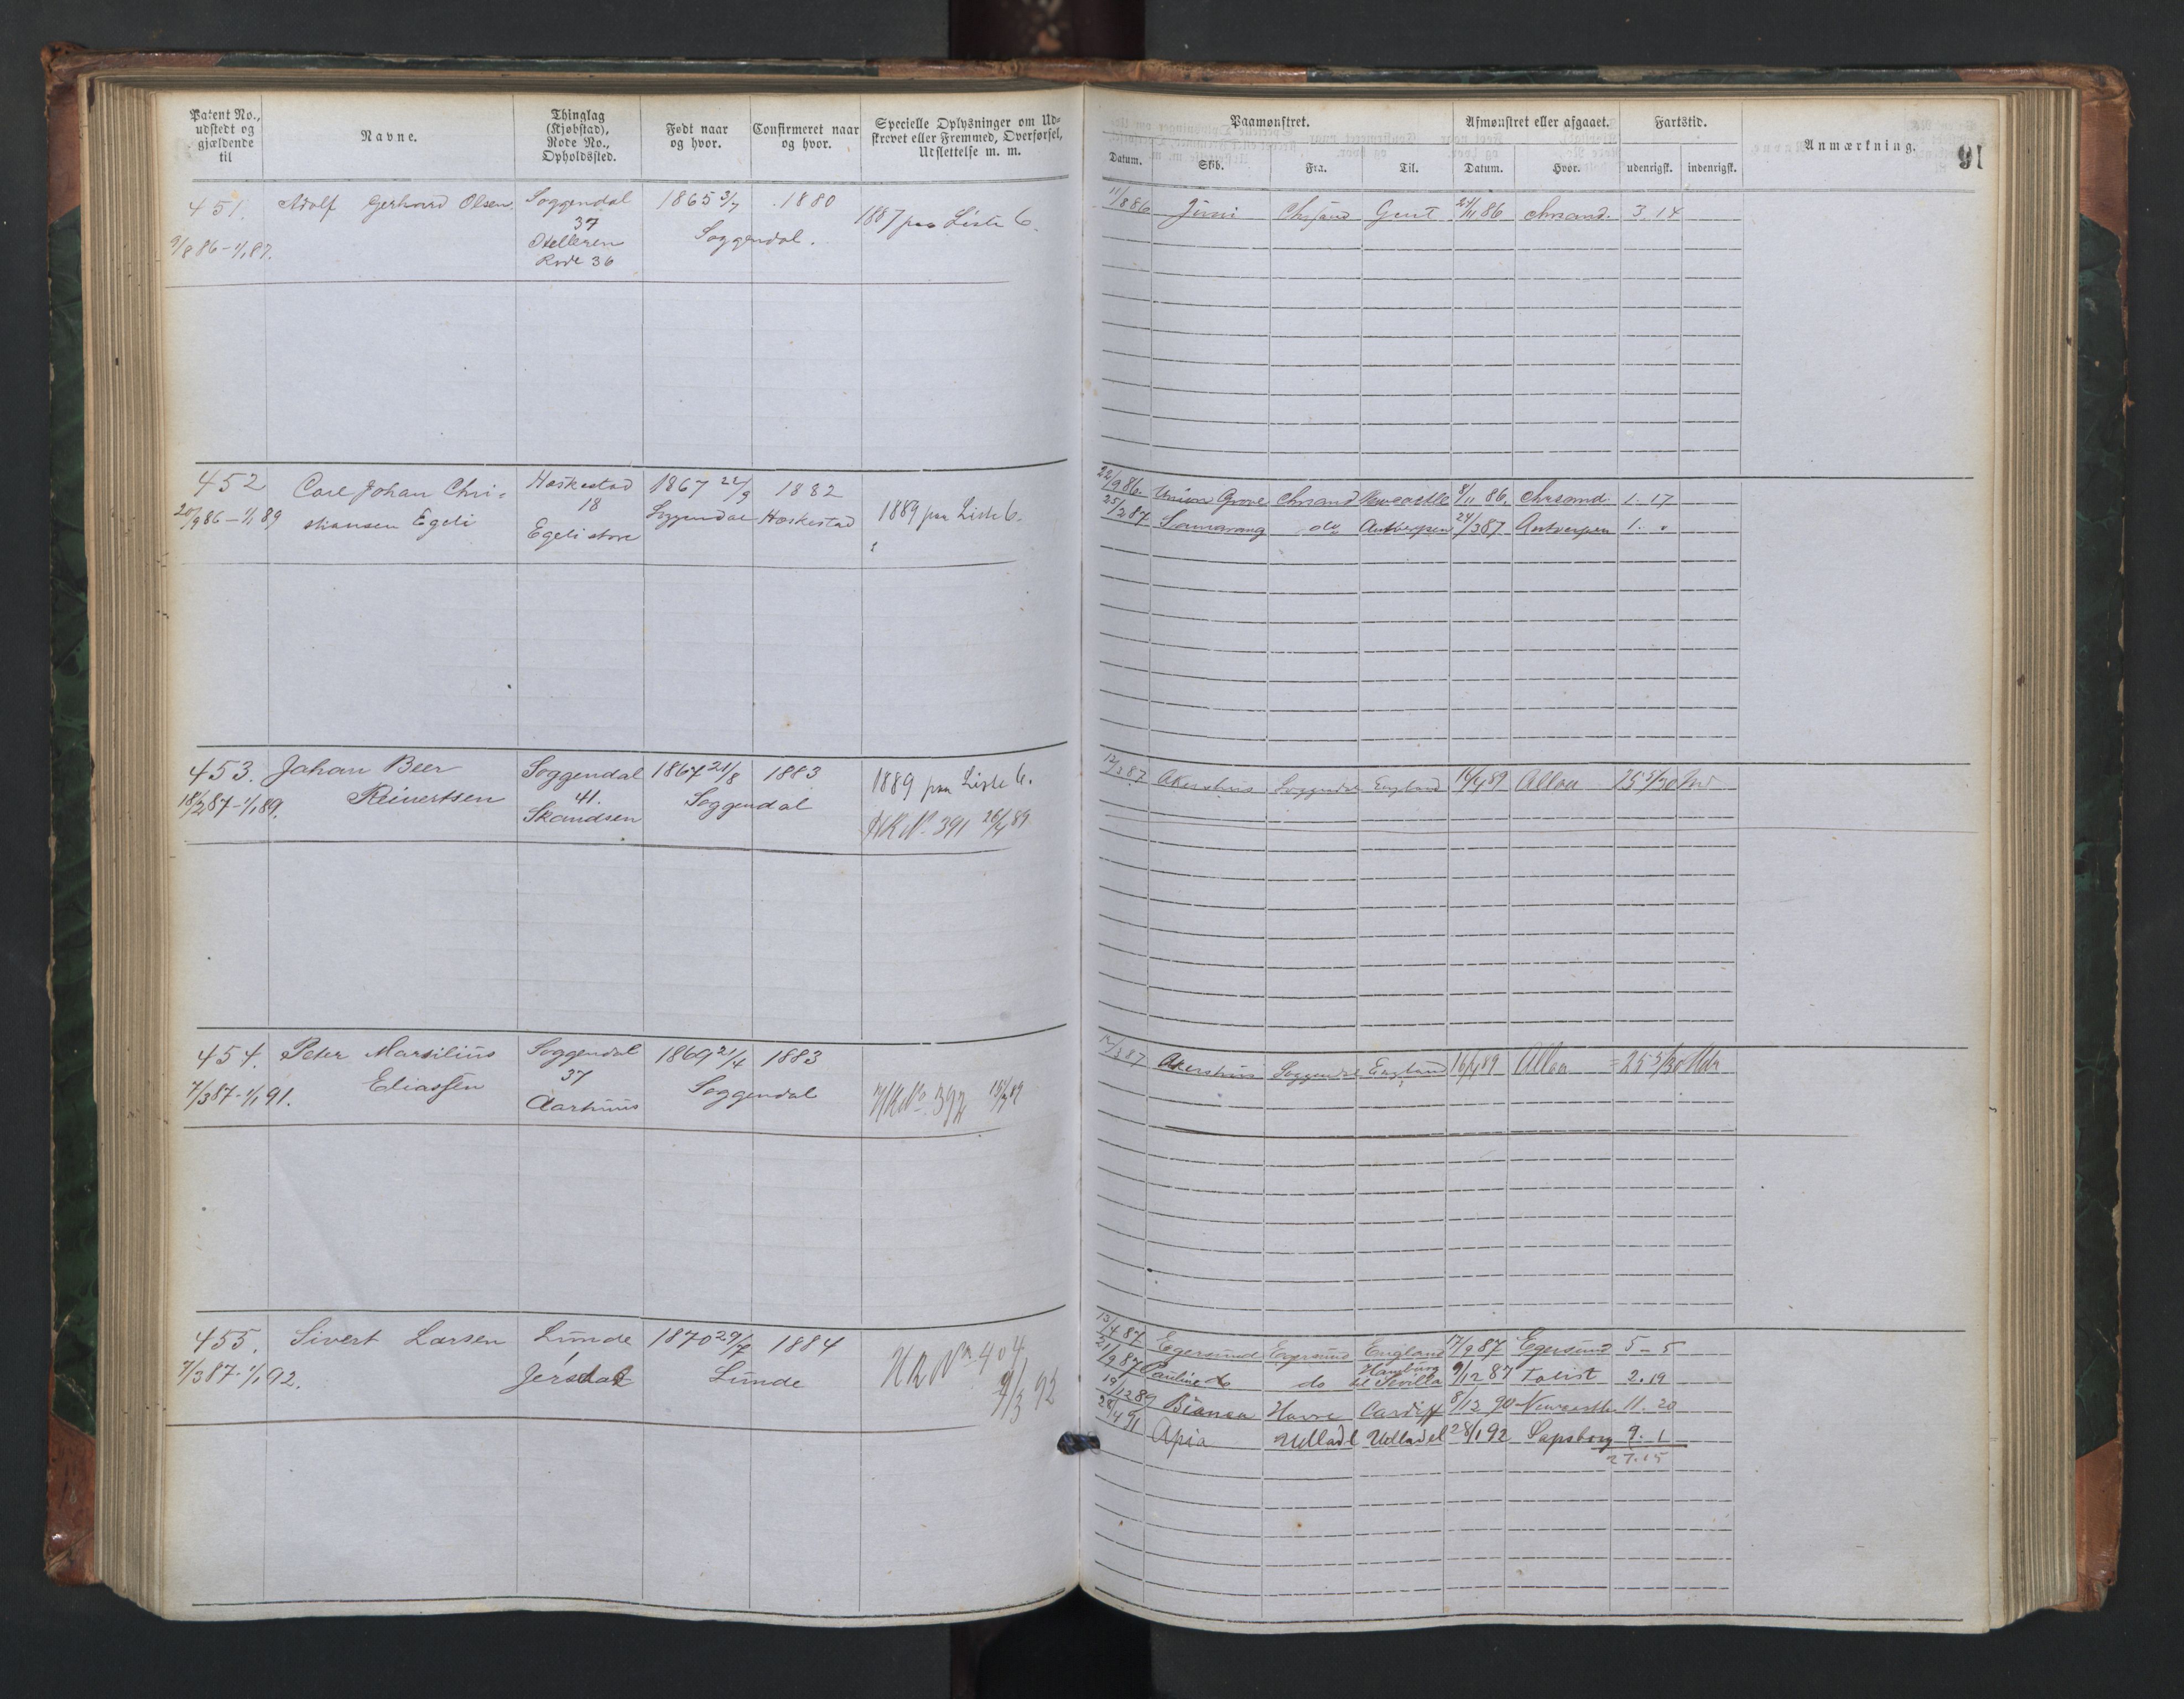 Patent No., udstedt og gjældende til
Navne.
Thinglag (Kjøbstad), Rode No., Opholdssted.
Født naar og hvor.
Confirmeret naar og hvor.
Specielle Oplysninger om Udskrevet eller Fremmed, Overførsel, Udslettelse m. m.
451. Adolf Gerhard Olsen. Soggendal 1865 3/7 1880 1887 paa Liste C.
37
9/8 86 - 1/1 87. Rode 36 Soggendal.
452 Carl Johan Chri- Heskestad 1867 22/9 1882
20/9 86 - 1/1 89 stiansen Egeli 18 Soggendal Heskestad 1889 paa Liste C.
Egeli store
453. Johan Beer Soggendal 1867 21/8 1883 1889 paa Liste C.
18/2 87 - 1/1 89. Reinertsen 41. Soggendal
Skandsen HR No. 391 26/4 89
454. Peter Marsilius Soggendal 1869 21/4 1883
7/3 87 - 1/1 91. Eliassen 37 Soggendal HR No. 392
Aarhuus
455. Sivert Larsen Lunde 1870 29/7 1884 HR No 404
7/3 87 - 1/1 92. Jersdal Lunde 9/3 92
Paamønstret.
Afmønstret eller afgaaet.
Fartstid.
Anmærkning.
91
Datum. Skib. Fra. Til. Datum. Hvor. udenrigsk. indenrigsk.
11/8 86 Juni Chrsand Gent 24/11 86 Chrsand. 3. 14
22/9 86 Union Grove Chrsand Newcastle 8/11 86. Chrsand. 1. 17
25/2 87 Samarang do Antwerpen 24/3 87 Antwerpen 1. "
12/3 87 Akershus Soggendal England 16/4 89 Alloa 25 5/30 Md
12/3 87 Akershus Soggendal England 16/4 89 Alloa = 25 5/30 Mdr
13/4 87 Egersund Egersund England 17/9 87 Egersund 5 - 5
21/9 87 Pauline do Hamburg til Sevilla 9/12 87 2. 19
19/12 89 Bianca Havre Cardiff 8/12 90 Newcastle 11. 20
28/4 91 Apia Uddladl Uddladel 28/1 92 Sapsborg 9. 1
27. 15